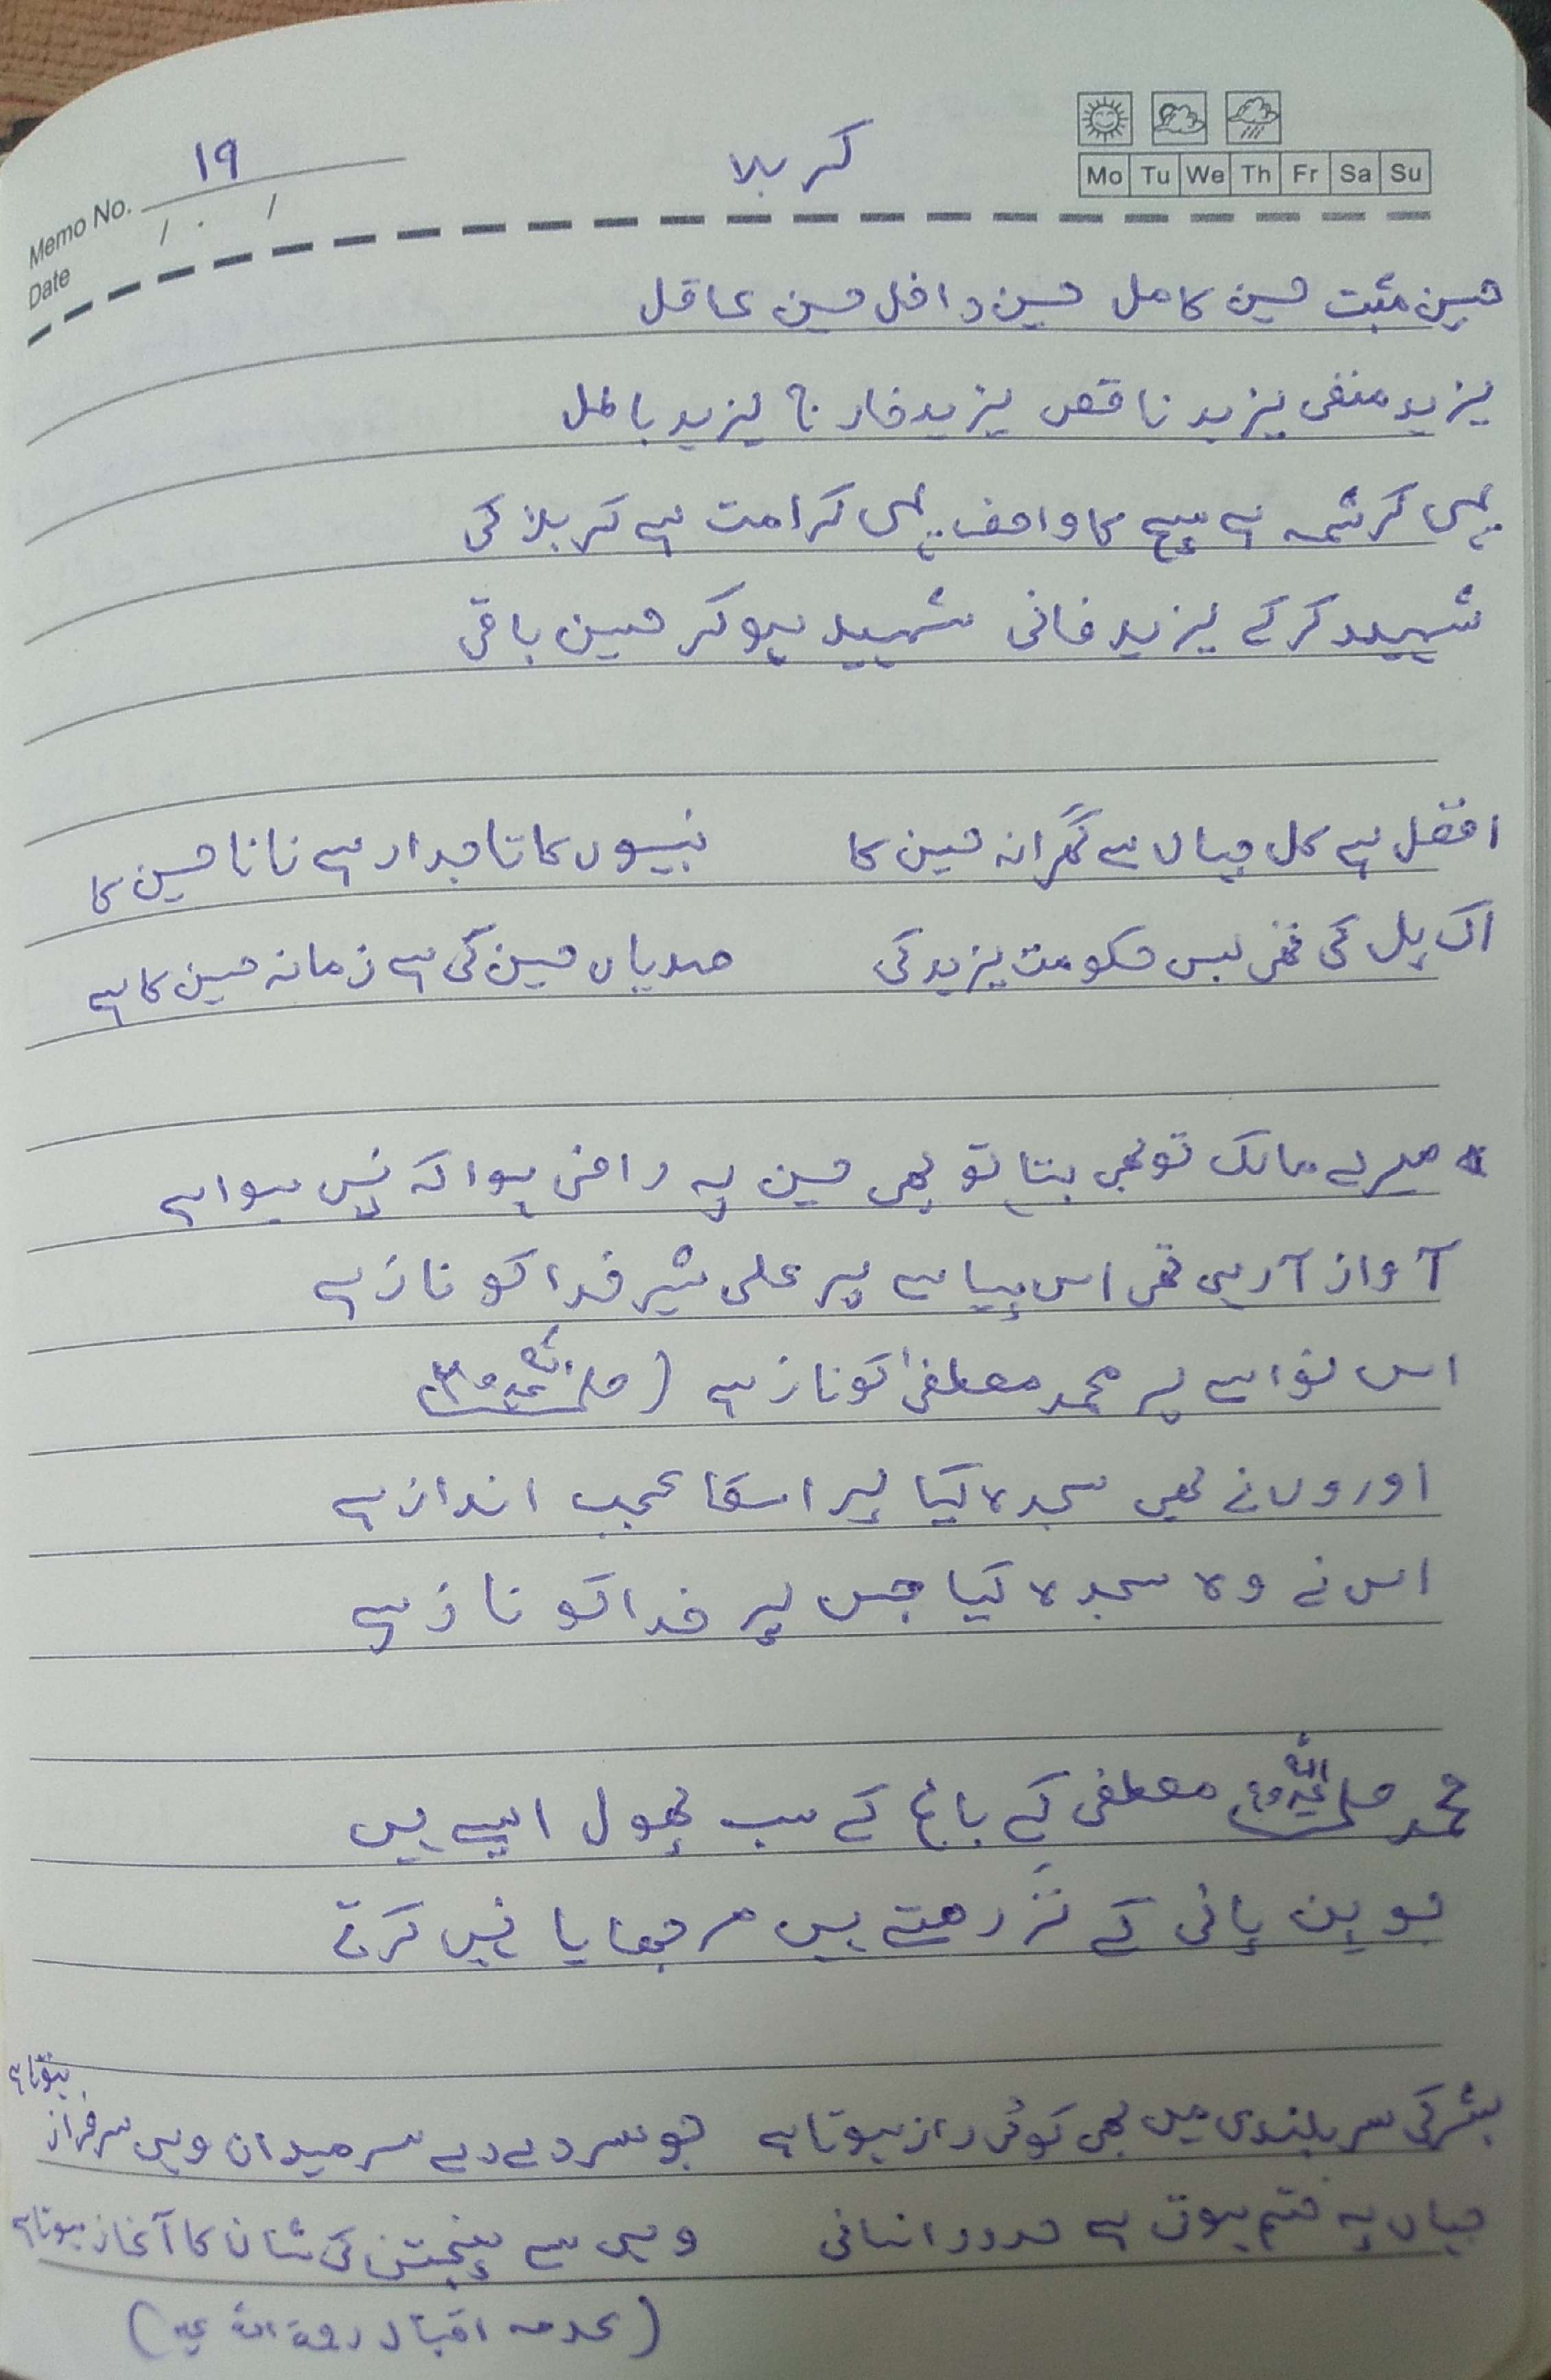 Memo No. ۱۹
Date / . /
کربلا
Mo Tu We Th Fr Sa Su
حسین مثبت حسین کامل حسین داخل حسین عاقل
یزید منفی یزید ناقص یزید خارج یزید باطل
یہی کرشمہ ہے سچ کا واصف یہی کرامت ہے کربلا کی
شہید کر کے یزید فانی شہید ہو کر حسین باقی
افضل ہے کل جہاں سے گھرانہ حسین کا نبیوں کا تاجدار ہے نانا حسین کا
اک پل کی تھی بس حکومت یزید کی صدیاں حسین کی ہے زمانہ حسین کا ہے
میرے مالک تو بھی بتا تو بھی حسین پہ راضی ہوا کہ نہیں ہوا ہے
آواز آ رہی تھی اس پیاسے پر علی شیر خدا کو ناز ہے
اس نواسے پر محمد مصطفیٰ کو ناز ہے (صلی اللہ علیہ وسلم)
اوروں نے بھی سجدہ کیا پر اسکا عجب انداز ہے
اس نے وہ سجدہ کیا جس پر خدا کو ناز ہے
محمد صلی اللہ علیہ وسلم مصطفی کے باغ کے سب پھول ایسے ہیں
جو بن پانی کے تر رہتے ہیں مرجھایا نہیں کرتے
بشر کی سربلندی میں بھی کوئی راز ہوتا ہے جو سر دے دے سر میدان وہی سرفراز ہوتا ہے
جہاں پہ ختم ہوتی ہے حدود انسانی وہیں سے پنجتن کی شان کا آغاز ہوتا ہے
(علامہ اقبال رحمۃ اللہ علیہ)